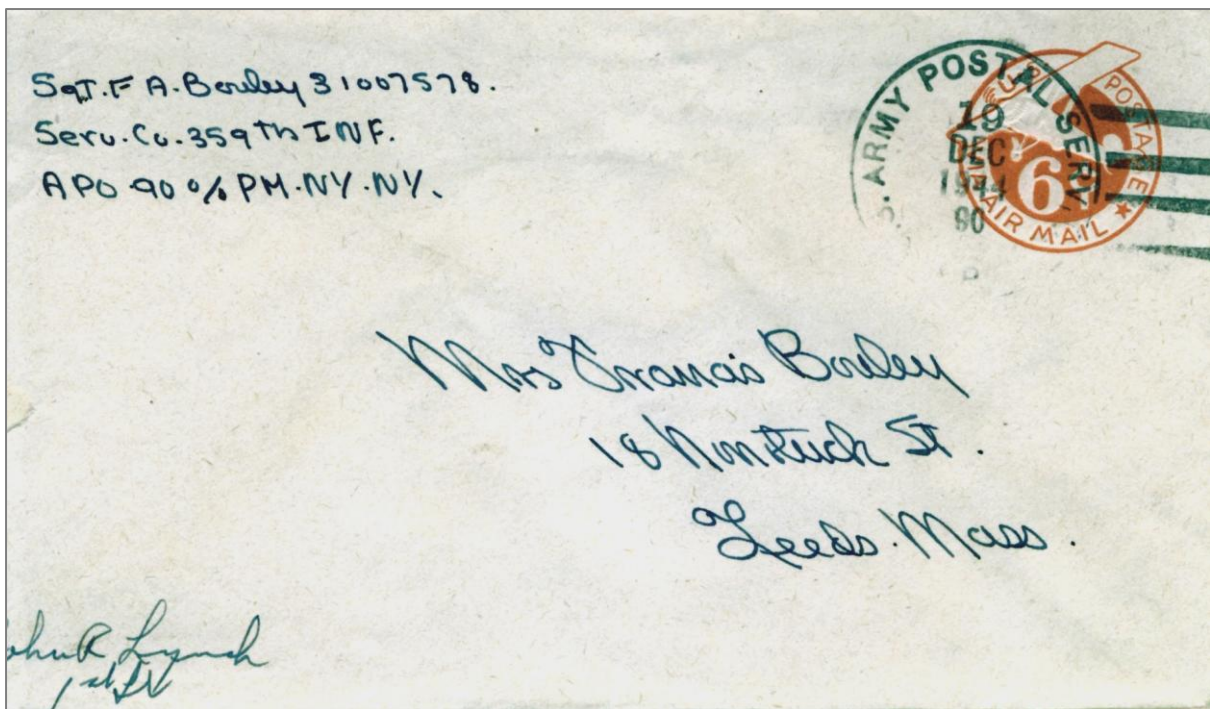 Sgt. F A. Bouley 31007578.
Serv. Co. 359th INF.
APO 90 % PM. NY. NY.
S. ARMY POSTAL SERV.
19
DEC
1944
90
POSTAGE
6¢
VIA AIR MAIL
Mrs Francis Bouley
18 Nonotuck St.
Leeds. Mass.
John R Lynch
1st Lt